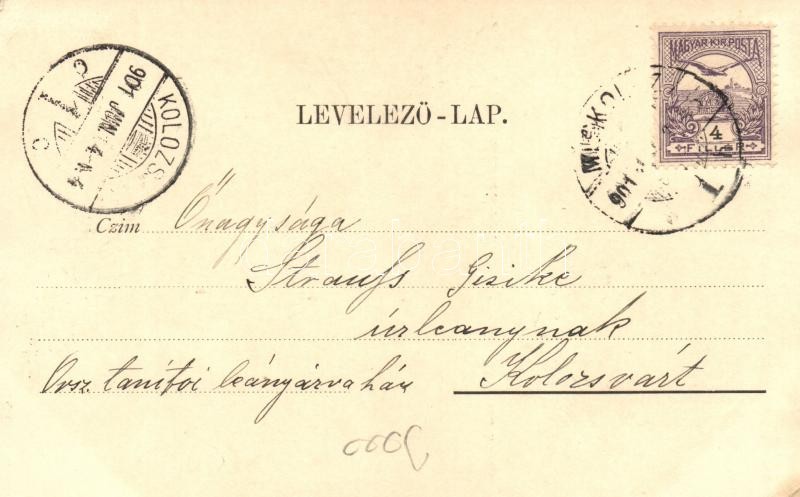 MAGYAR KIR. POSTA
4
FILLÉR
KOLOZS
901 JUN
LEVELEZŐ-LAP.
MISKOLC
901
1
Czim Őnagysága
Strauss Gizike
úrleánynak
Orsz. tanítói leányárvaház Kolozsvárt